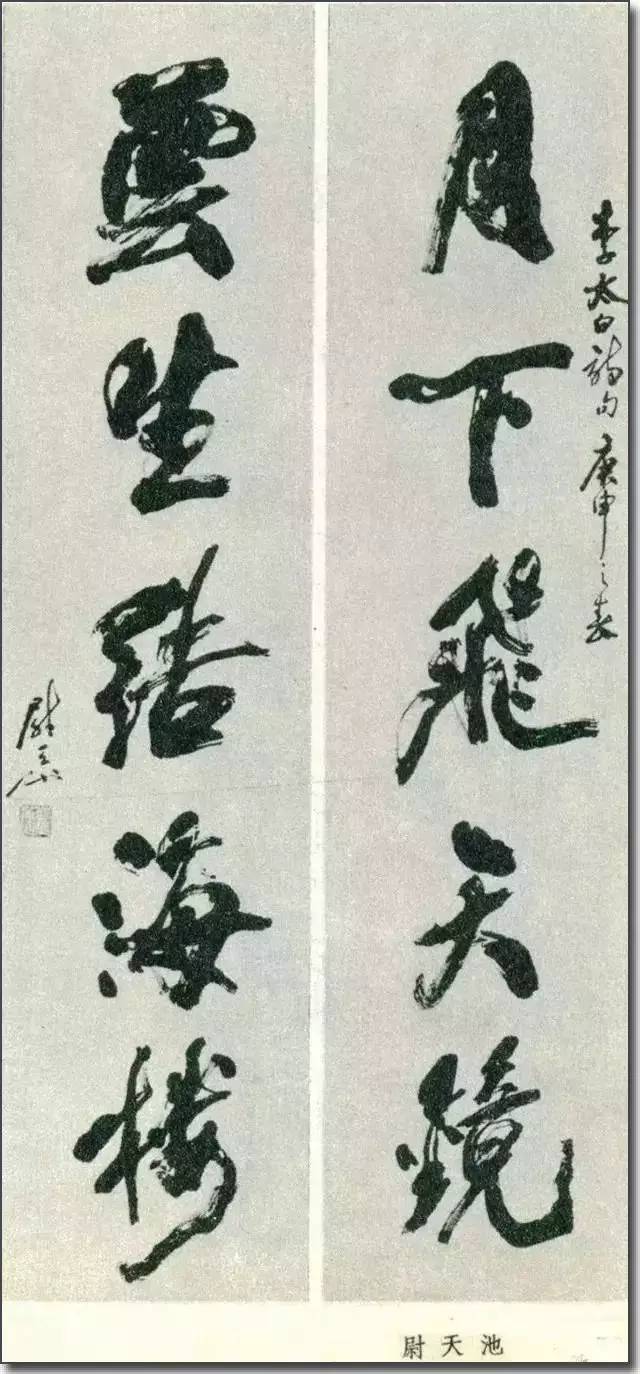 李太白詩句 庚申之春
月下飛天鏡
雲生結海樓
尉天池
尉天池